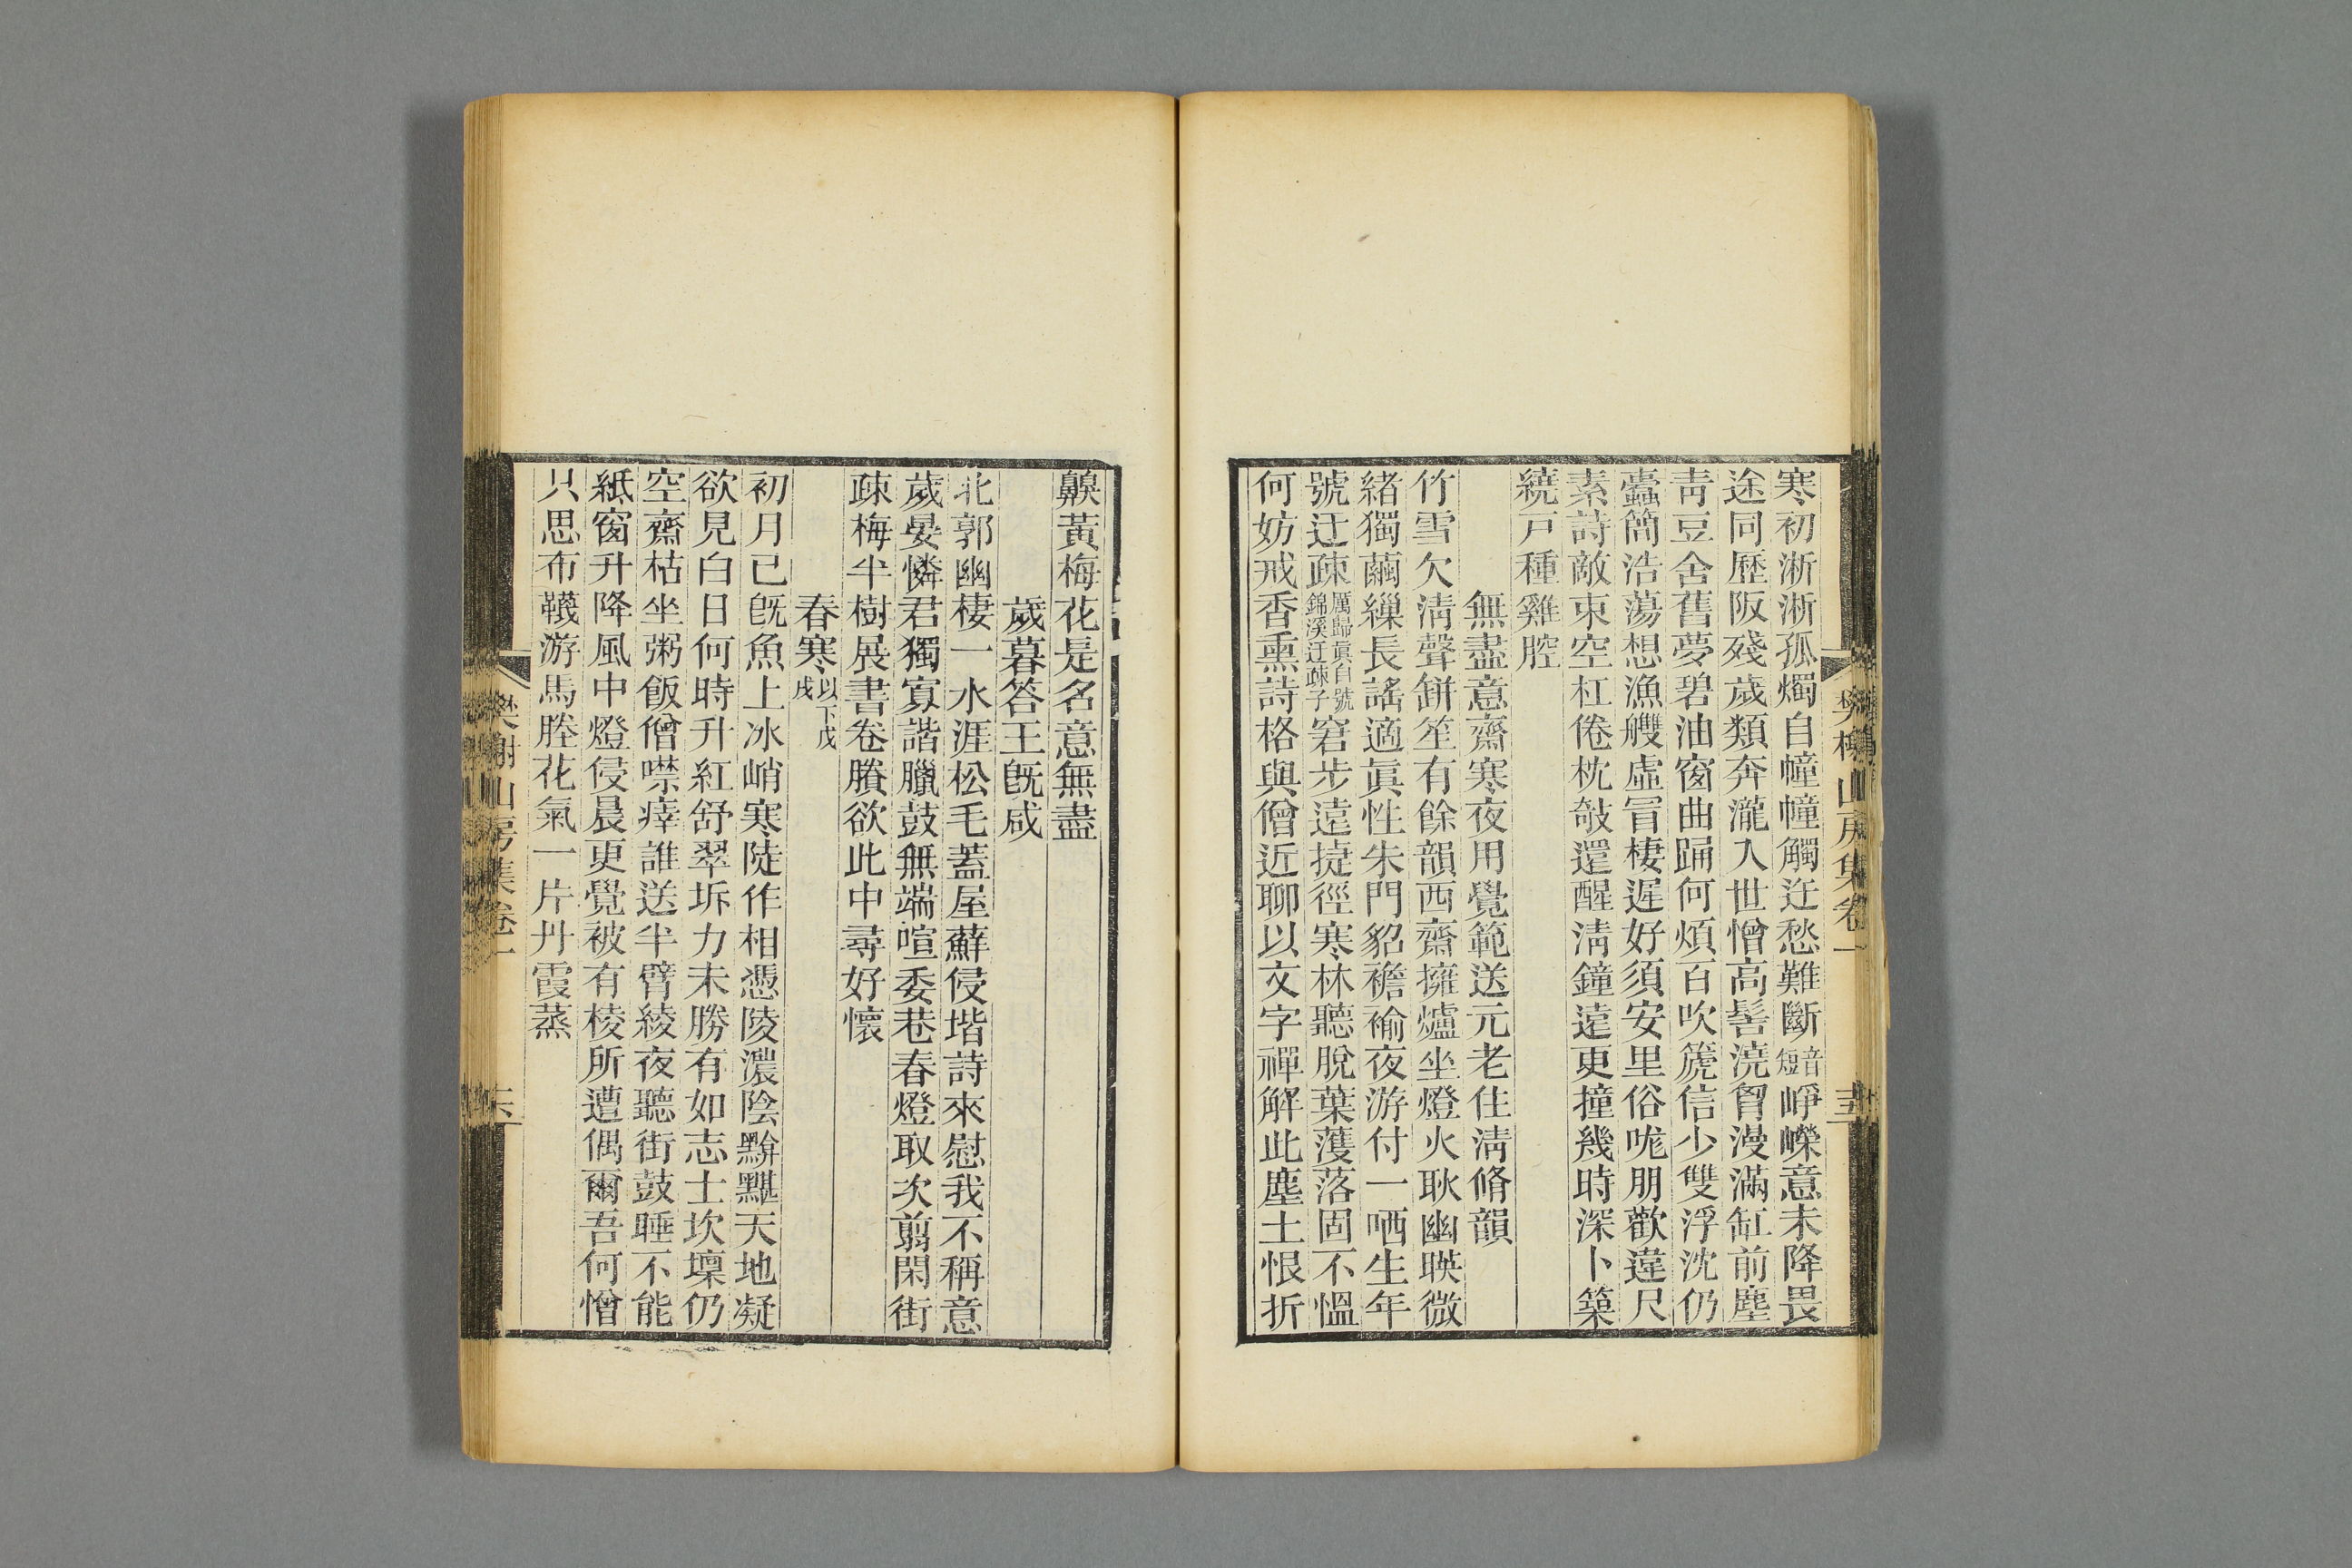 寒初淅淅孤燭自幢幢觸迕愁難斷音短崢嶸意未降畏
途同歷阪殘歲類奔瀧入世憎高髻澆胷漫滿缸前塵
靑豆舍舊夢碧油窗曲踊何煩百吹箎信少雙浮沈仍
蠹簡浩蕩想漁艭虛冐棲遲好須安里俗哤朋歡違尺
素詩敵束空杠倦枕攲還醒淸鐘遠更撞幾時深卜築
繞戸種雞腔
無盡意齋寒夜用覺範送元老住淸脩韻
竹雪欠淸聲缾笙有餘韻西齋擁爐坐燈火耿幽映微
緖獨繭繅長謠適眞性朱門貂襜褕夜游付一哂生年
號迂疎厲歸眞自號錦溪迂疎子窘步遠捷徑寒林聽脫葉濩落固不慍
何妨戒香熏詩格與僧近聊以文字禪解此塵土恨折
樊榭山房集卷一
齅黃梅花是名意無盡
歲暮答王旣咸
北郭幽棲一水涯松毛蓋屋蘚侵堦詩來慰我不稱意
歲晏憐君獨寡諧臘鼓無端喧委巷春燈取次翦閑街
疎梅半樹展書卷賸欲此中尋好懷
春寒以下戊戌
初月已旣魚上冰峭寒陡作相憑陵濃陰黭黮天地凝
欲見白日何時升紅舒翠坼力未勝有如志士坎壈仍
空齋枯坐粥飯僧噤瘁誰送半臂綾夜聽街鼓睡不能
紙窗升降風中燈侵晨更覺被有棱所遭偶爾吾何憎
只思布韈游馬塍花氣一片丹霞蒸
樊榭山房集卷一